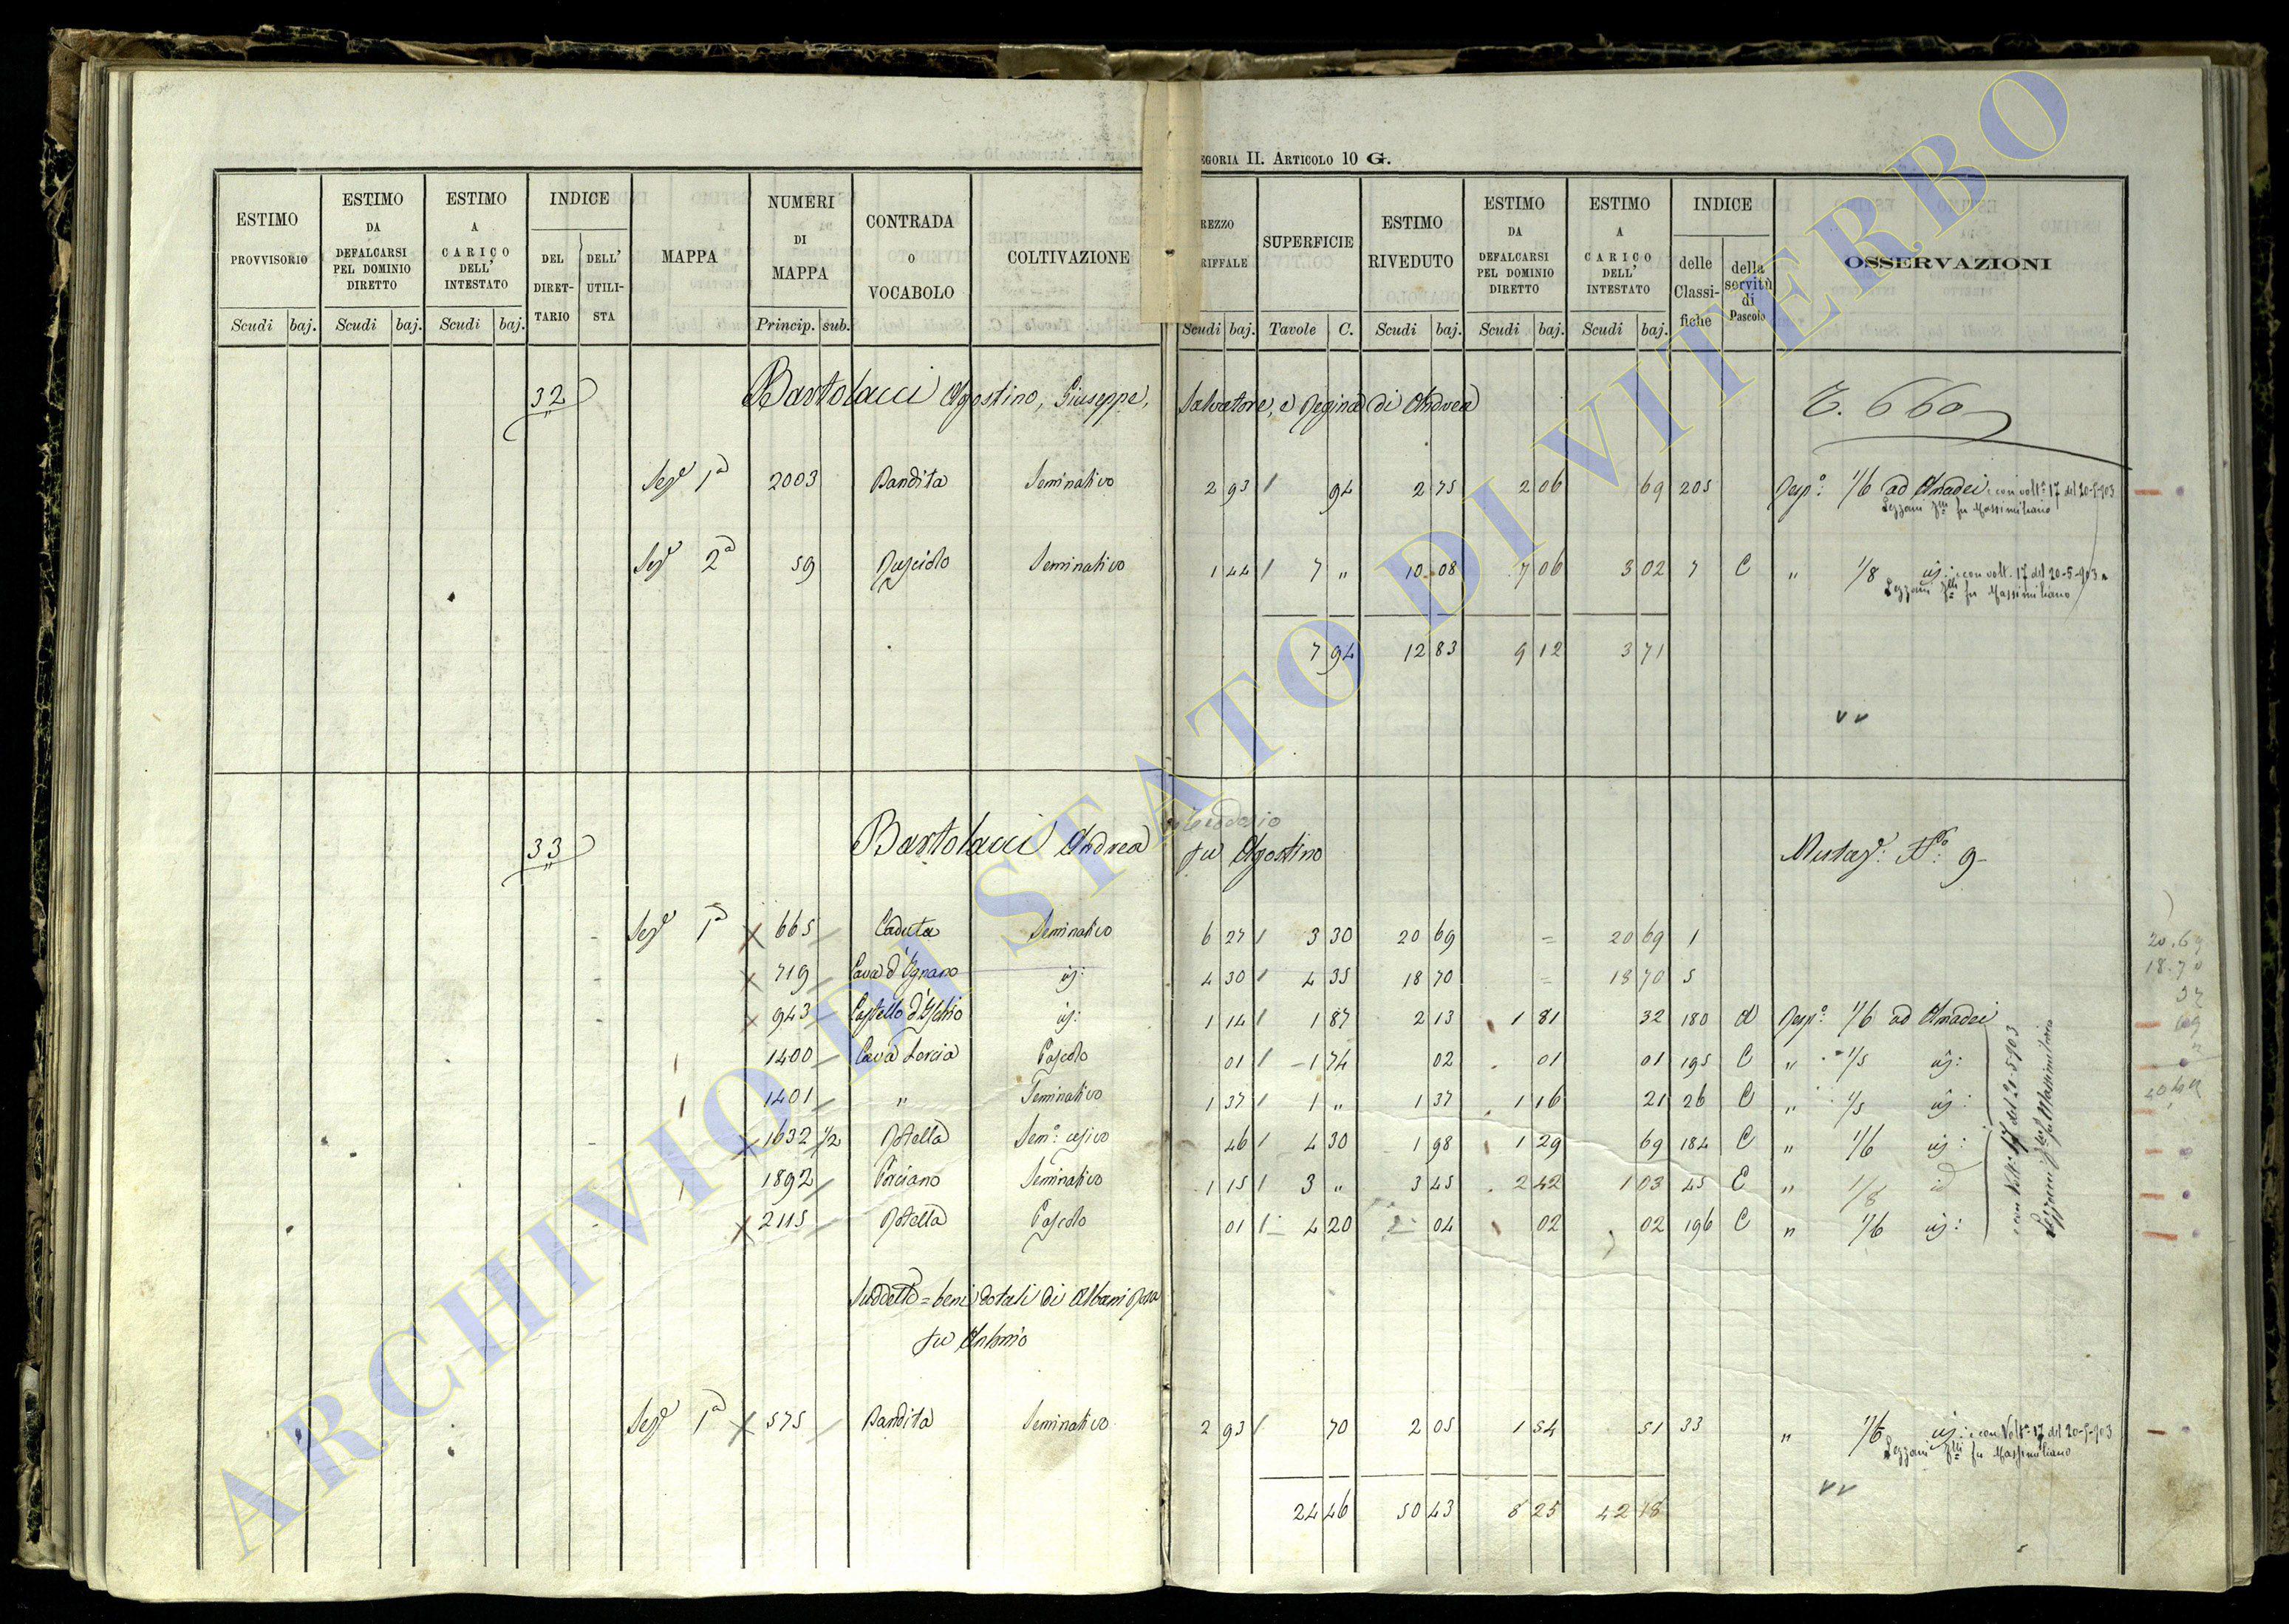 EGORIA II. ARTICOLO 10 G.
ESTIMO PROVVISORIO Scudi baj.
ESTIMO DA DEFALCARSI PEL DOMINIO DIRETTO Scudi baj.
ESTIMO A CARICO DELL' INTESTATO Scudi baj.
INDICE DEL DIRET-TARIO DELL' UTILI-STA
MAPPA
NUMERI DI MAPPA Princip. sub.
CONTRADA O VOCABOLO
COLTIVAZIONE
REZZO RIFFALE Scudi baj.
SUPERFICIE Tavole C.
ESTIMO RIVEDUTO Scudi baj.
ESTIMO DA DEFALCARSI PEL DOMINIO DIRETTO Scudi baj.
ESTIMO A CARICO DELL' INTESTATO Scudi baj.
INDICE delle Classi-fiche della servitù di Pascolo
OSSERVAZIONI
32 Bartolacci Agostino, Giuseppe, Salvatore, e Regina di Andrea
Sez. 1a 2003 Bandita Seminativo 2 93 94 2 75 2 06 69 205 Resp.: 1/6 ad Amadei e con volt. 17 del 20-5-903
Lezzani flli fu Massimiliano
Sez. 2a 59 Seminativo 1 44 7 " 10 08 7 06 3 02 7 C " 1/8 id: e con volt. 17 del 20-5-903
Lezzani flli fu Massimiliano
7 94 12 83 9 12 3 71
33 Bartolacci Andrea fu Agostino 9
Sez. 1a 665 Caduta Seminativo 6 27 3 30 20 69 = 20 69 1
719 Cava d'Ignano id: 4 30 4 35 18 70 = 18 70 5
943 Castello d'Ischio id: 1 14 1 87 2 13 1 81 32 180 A Resp.: 1/6 ad Amadei
1400 Cava Lorcia Pascolo 01 1 74 02 01 01 195 C " 1/5 id:
1401 " Seminativo 1 37 1 " 1 37 1 16 21 26 C " 1/5 id:
1632 1/2 Rotella 46 4 30 1 98 1 29 69 184 C " 1/6 id:
1892 Porciano Seminativo 1 15 3 " 3 45 2 42 1 03 45 E " 1/8 id
2115 Rotella Pascolo 01 4 20 04 02 02 196 C " 1/6 id:
e con Volt. 17 del 20-5-903
Lezzani flli fu Massimiliano
Suddetto = beni dotali di Albani Rosa
fu Antonio
Sez. 1a 575 Bandita Seminativo 2 93 70 2 05 1 54 51 33 " 1/6 id: e con Volt. 17 del 20-5-903
Lezzani flli fu Massimiliano
24 46 50 43 8 25 42 18
20.69
18.70
ARCHIVIO DI STATO DI VITERBO